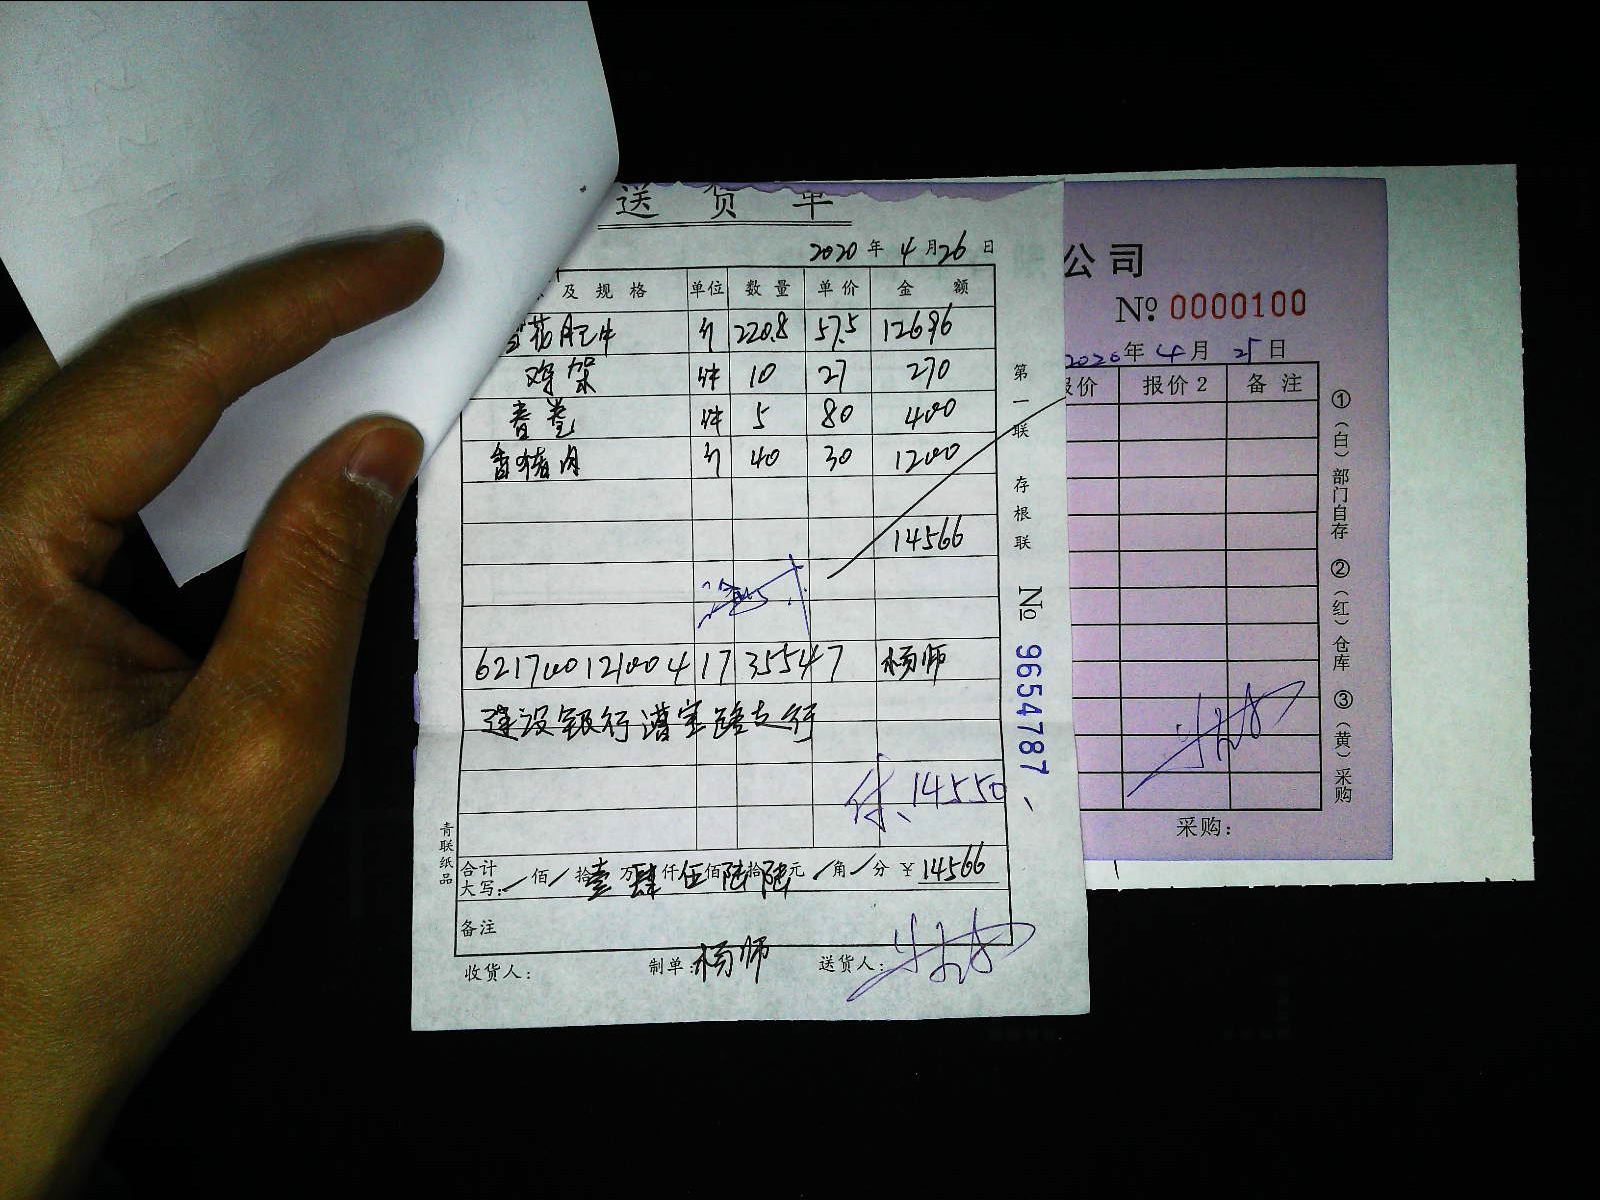 送货单
2020年4月26日
及规格 单位 数量 单价 金额
雪花肥牛 斤 220.8 57.5 12696
鸡架 件 10 27 270
春卷 件 5 80 400
香猪肉 斤 40 30 1200
14566
6217001210041735547 杨师
建设银行漕宝路支行
付、14550
合计大写: 佰 拾壹万肆仟伍佰陆拾陆元 角 分 ¥14566
备注
收货人: 制单:杨师 送货人:
青联纸品
第一联 存根联 № 9654787
公司
№ 0000100
2020年4月25日
报价 报价2 备注
采购:
①(白)部门自存 ②(红)仓库 ③(黄)采购